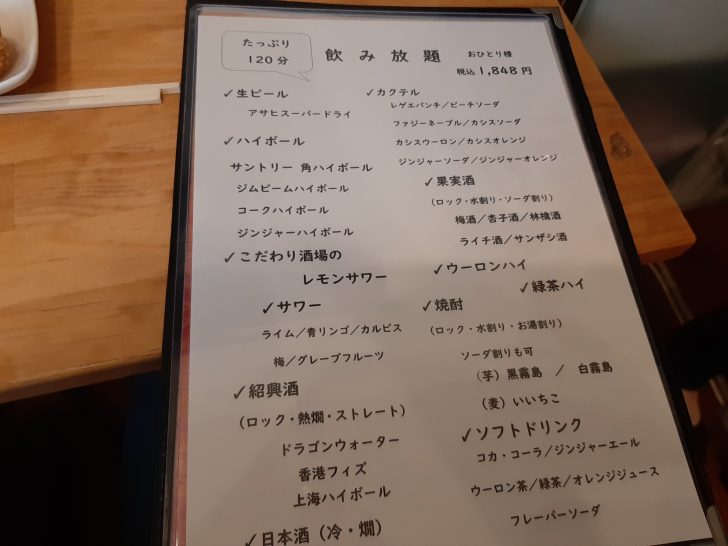 たっぷり
120分
飲み放題
おひとり様
税込 1,848 円
✓生ビール
アサヒスーパードライ
✓ハイボール
サントリー 角ハイボール
ジムビームハイボール
コークハイボール
ジンジャーハイボール
✓こだわり酒場の
レモンサワー
✓サワー
ライム／青リンゴ／カルピス
梅／グレープフルーツ
✓紹興酒
（ロック・熱燗・ストレート）
ドラゴンウォーター
香港フィズ
上海ハイボール
✓日本酒（冷・燗）
✓カクテル
レゲエパンチ／ピーチソーダ
ファジーネーブル／カシスソーダ
カシスウーロン／カシスオレンジ
ジンジャーソーダ／ジンジャーオレンジ
✓果実酒
（ロック・水割り・ソーダ割り）
梅酒／杏子酒／林檎酒
ライチ酒／サンザシ酒
✓ウーロンハイ
✓緑茶ハイ
✓焼酎
（ロック・水割り・お湯割り）
ソーダ割りも可
（芋）黒霧島 ／ 白霧島
（麦）いいちこ
✓ソフトドリンク
コカ・コーラ／ジンジャーエール
ウーロン茶／緑茶／オレンジジュース
フレーバーソーダ